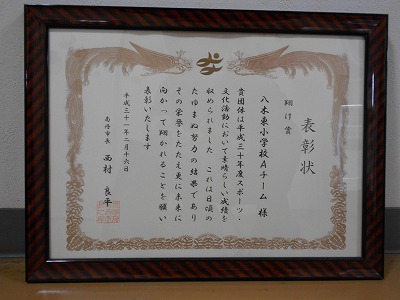 表彰状
翔け賞
八木東小学校Aチーム 様
貴団体は平成三十年度スポーツ・
文化活動において素晴らしい成績を
収められました これは日頃の
たゆまぬ努力の結果であり
その栄誉をたたえ更に未来に
向かって翔かれることを願い
表彰いたします
平成三十一年二月十六日
南丹市長 西村 良平